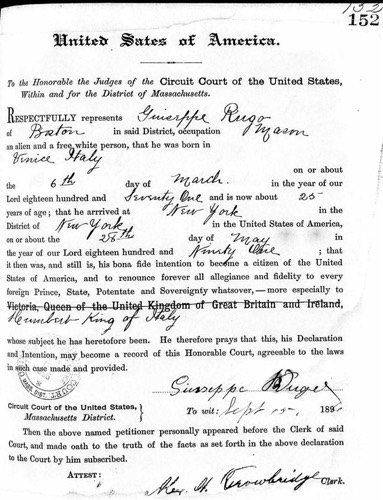 152
152
United Sates of America.
To the Honorable the Judges of the Circuit Court of the United States,
Within and for the District of Massachusetts.
RESPECTFULLY represents Guiseppe Rugo
of Boston in said District, occupation Mason
an alien and a free white person, that he was born in
Venice Italy
on or about
the 6th day of March. in the year of our
Lord eighteen hundred and Seventy One and is now about 25
years of age; that he arrrived at New York in the
District of New York in the United States of America,
on or about the 28th day of May in
the year of our Lord eighteen hundred and Ninety One ; that
it then was, and still is, his bona fide intention to become a citizen of the United
States of America, and to renounce forever all allegiance and fidelity to every
foreign Prince, State, Potentate and Sovereignty whatsover, — more especially to
Victoria, Queen of the United Kingdom of Great Britain and Ireland,
Humbert King of Italy
whose subject he has heretofore been. He therefore prays that this, his Declaration
and Intention, may become a record of this Honorable Court, agreeable to the laws
in such case made and provided.
Giuseppe
Circuit Court of the United States,
Massachusetts District.
To wit: Sept 15, 189
Then the above named petitioner personally appeared before the Clerk of said
Court, and made oath to the truth of the facts as set forth in the above declaration
to the Court by him subscribed.
ATTEST:
Alex. H. Trowbridge Clerk.